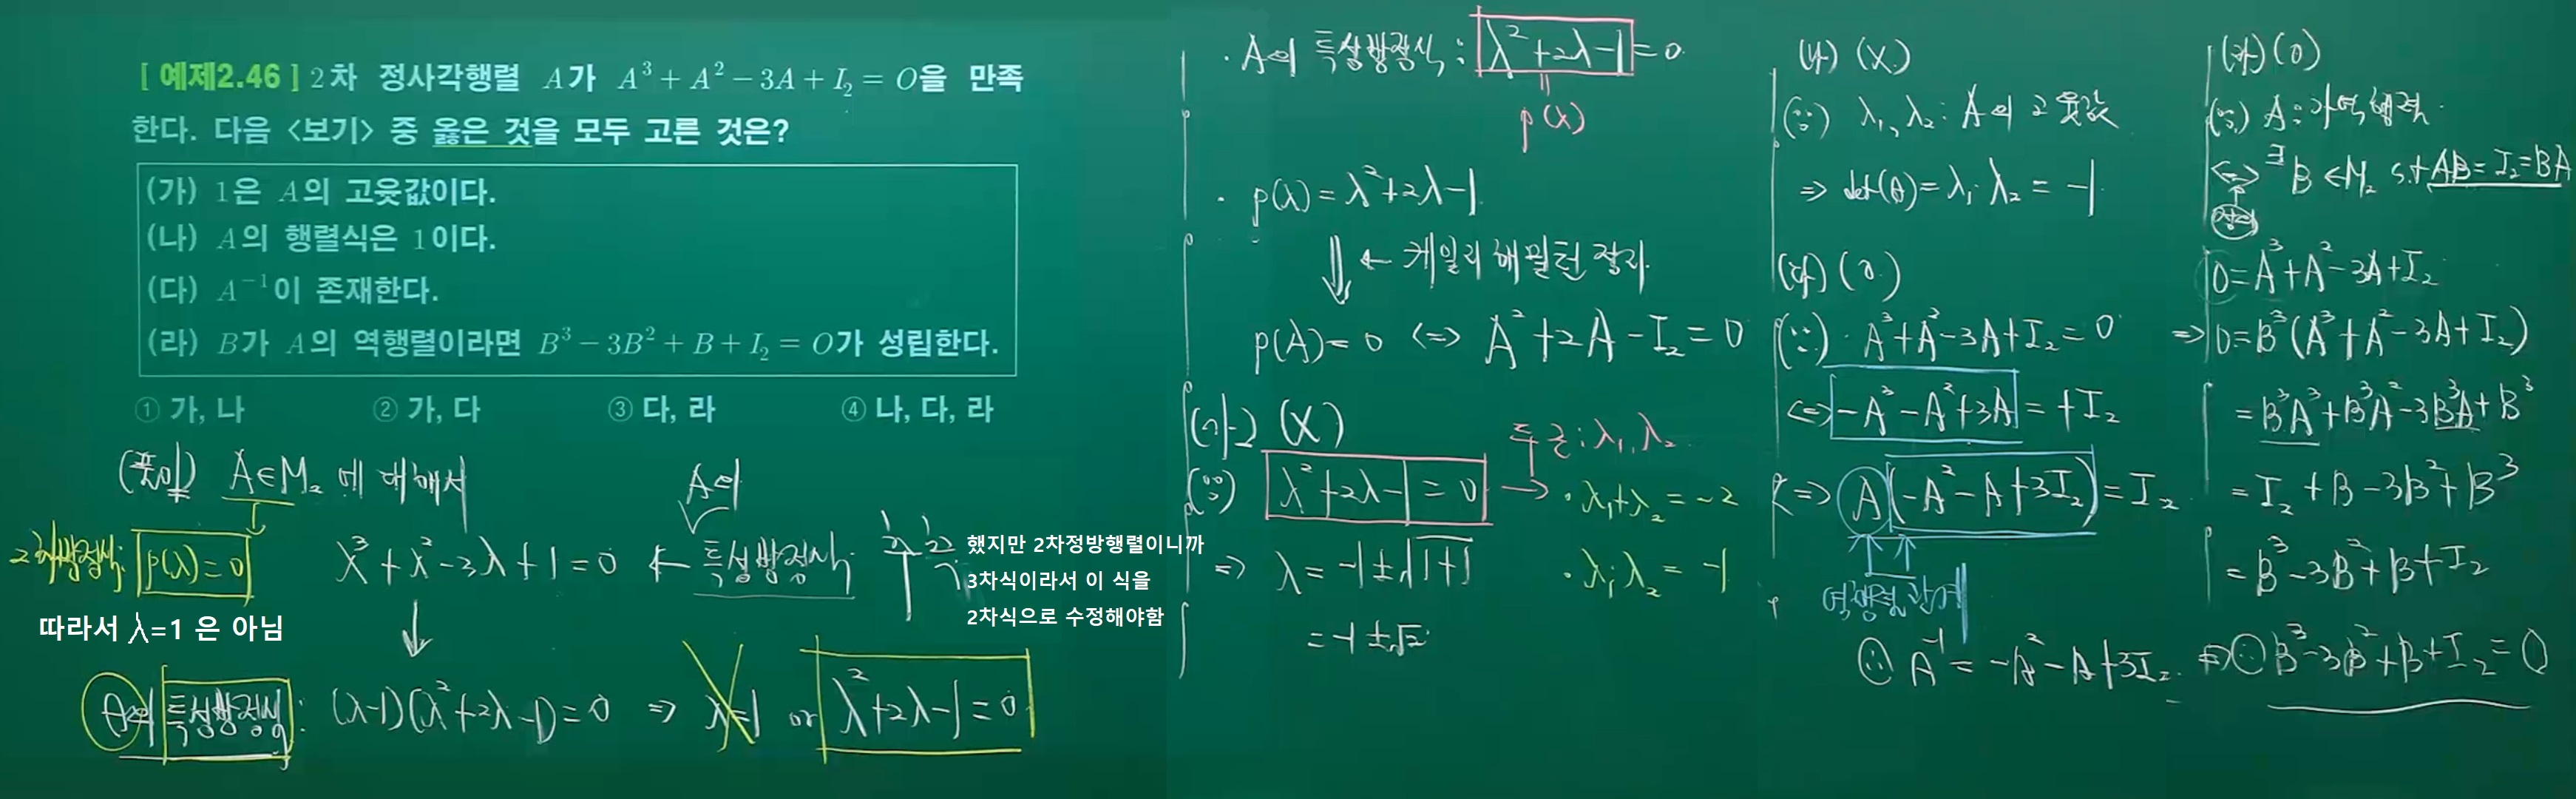 [ 예제2.46 ] 2차 정사각행렬 A가 A³ + A² − 3A + I₂ = O을 만족
한다. 다음 <보기> 중 옳은 것을 모두 고른 것은?
(가) 1은 A의 고윳값이다.
(나) A의 행렬식은 1이다.
(다) A⁻¹이 존재한다.
(라) B가 A의 역행렬이라면 B³ − 3B² + B + I₂ = O가 성립한다.
① 가, 나 ② 가, 다 ③ 다, 라 ④ 나, 다, 라
(풀이) A∈M₂에 대해서
A의
2차방정식: p(λ)=0
λ³+λ²-3λ+1=0 ← 특성방정식
했지만 2차정방행렬이니까
3차식이라서 이 식을
2차식으로 수정해야함
따라서 λ=1 은 아님
A의 특성방정식: (λ-1)(λ²+2λ-1)=0 ⇒ λ=1 or λ²+2λ-1=0
· A의 특성방정식: λ²+2λ-1=0
p(λ)
· p(λ)=λ²+2λ-1
⇓ ← 케일리 해밀턴 정리
p(A)=0 ⇔ A²+2A-I₂=0
(가) (X)
(∵) λ²+2λ-1=0 → 두 근: λ₁, λ₂
· λ₁+λ₂=-2
· λ₁·λ₂=-1
⇒ λ=-1±√1+1
=-1±√2
(나) (X)
(∵) λ₁, λ₂: A의 고윳값
⇒ det(A)=λ₁·λ₂=-1
(다) (O)
(∵) · A³+A²-3A+I₂=0
⇔ -A³-A²+3A=+I₂
⇔ A(-A²-A+3I₂)=I₂
역행렬 관계
∴ A⁻¹=-A²-A+3I₂
(라) (O)
(∵) A: 가역행렬
⇔ ∃B∈M₂ s.t AB=I₂=BA
정의
0=A³+A²-3A+I₂
⇒ 0=B³(A³+A²-3A+I₂)
=B³A³+B³A²-3B³A+B³
=I₂+B-3B²+B³
=B³-3B²+B+I₂
⇒ ∴ B³-3B²+B+I₂=0